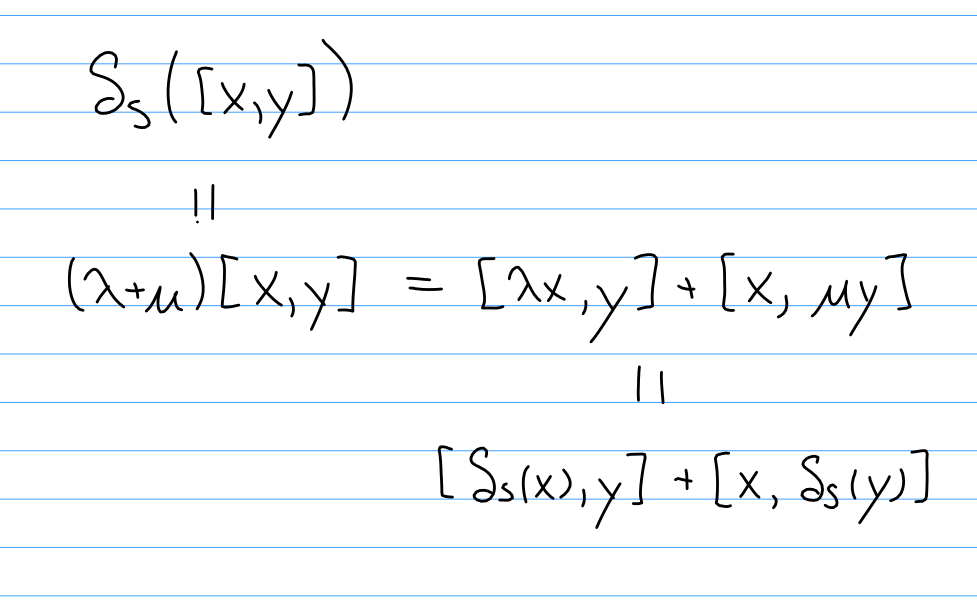 δₛ([x,y])
||
(λ+μ)[x,y] = [λx,y] + [x, μy]
||
[δₛ(x),y] + [x, δₛ(y)]